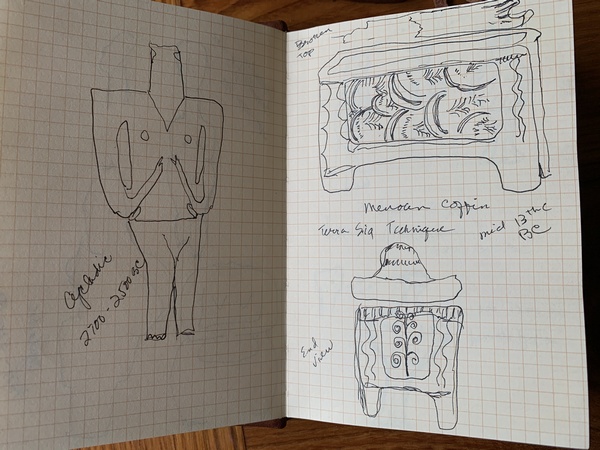 Cycladic
2700-2500 BC
Broken
Top
Menoan Coffin
Terra Sig Technique
mid 13th C
BC
End
View